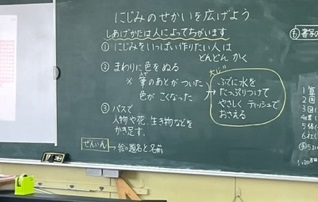 にじみのせかいを広げよう
しあげかたは人によってちがいます
①にじみをいっぱい作りたい人は
どんどん かく
②まわりに色をぬる
※ 筆のあとがついた
色がこくなった
ふでに水を
たっぷりつけて
やさしく ティッシュで
おさえる
③パスで
人物や花、生き物などを
かき足す。
ぜんいん → 絵の題名と名前